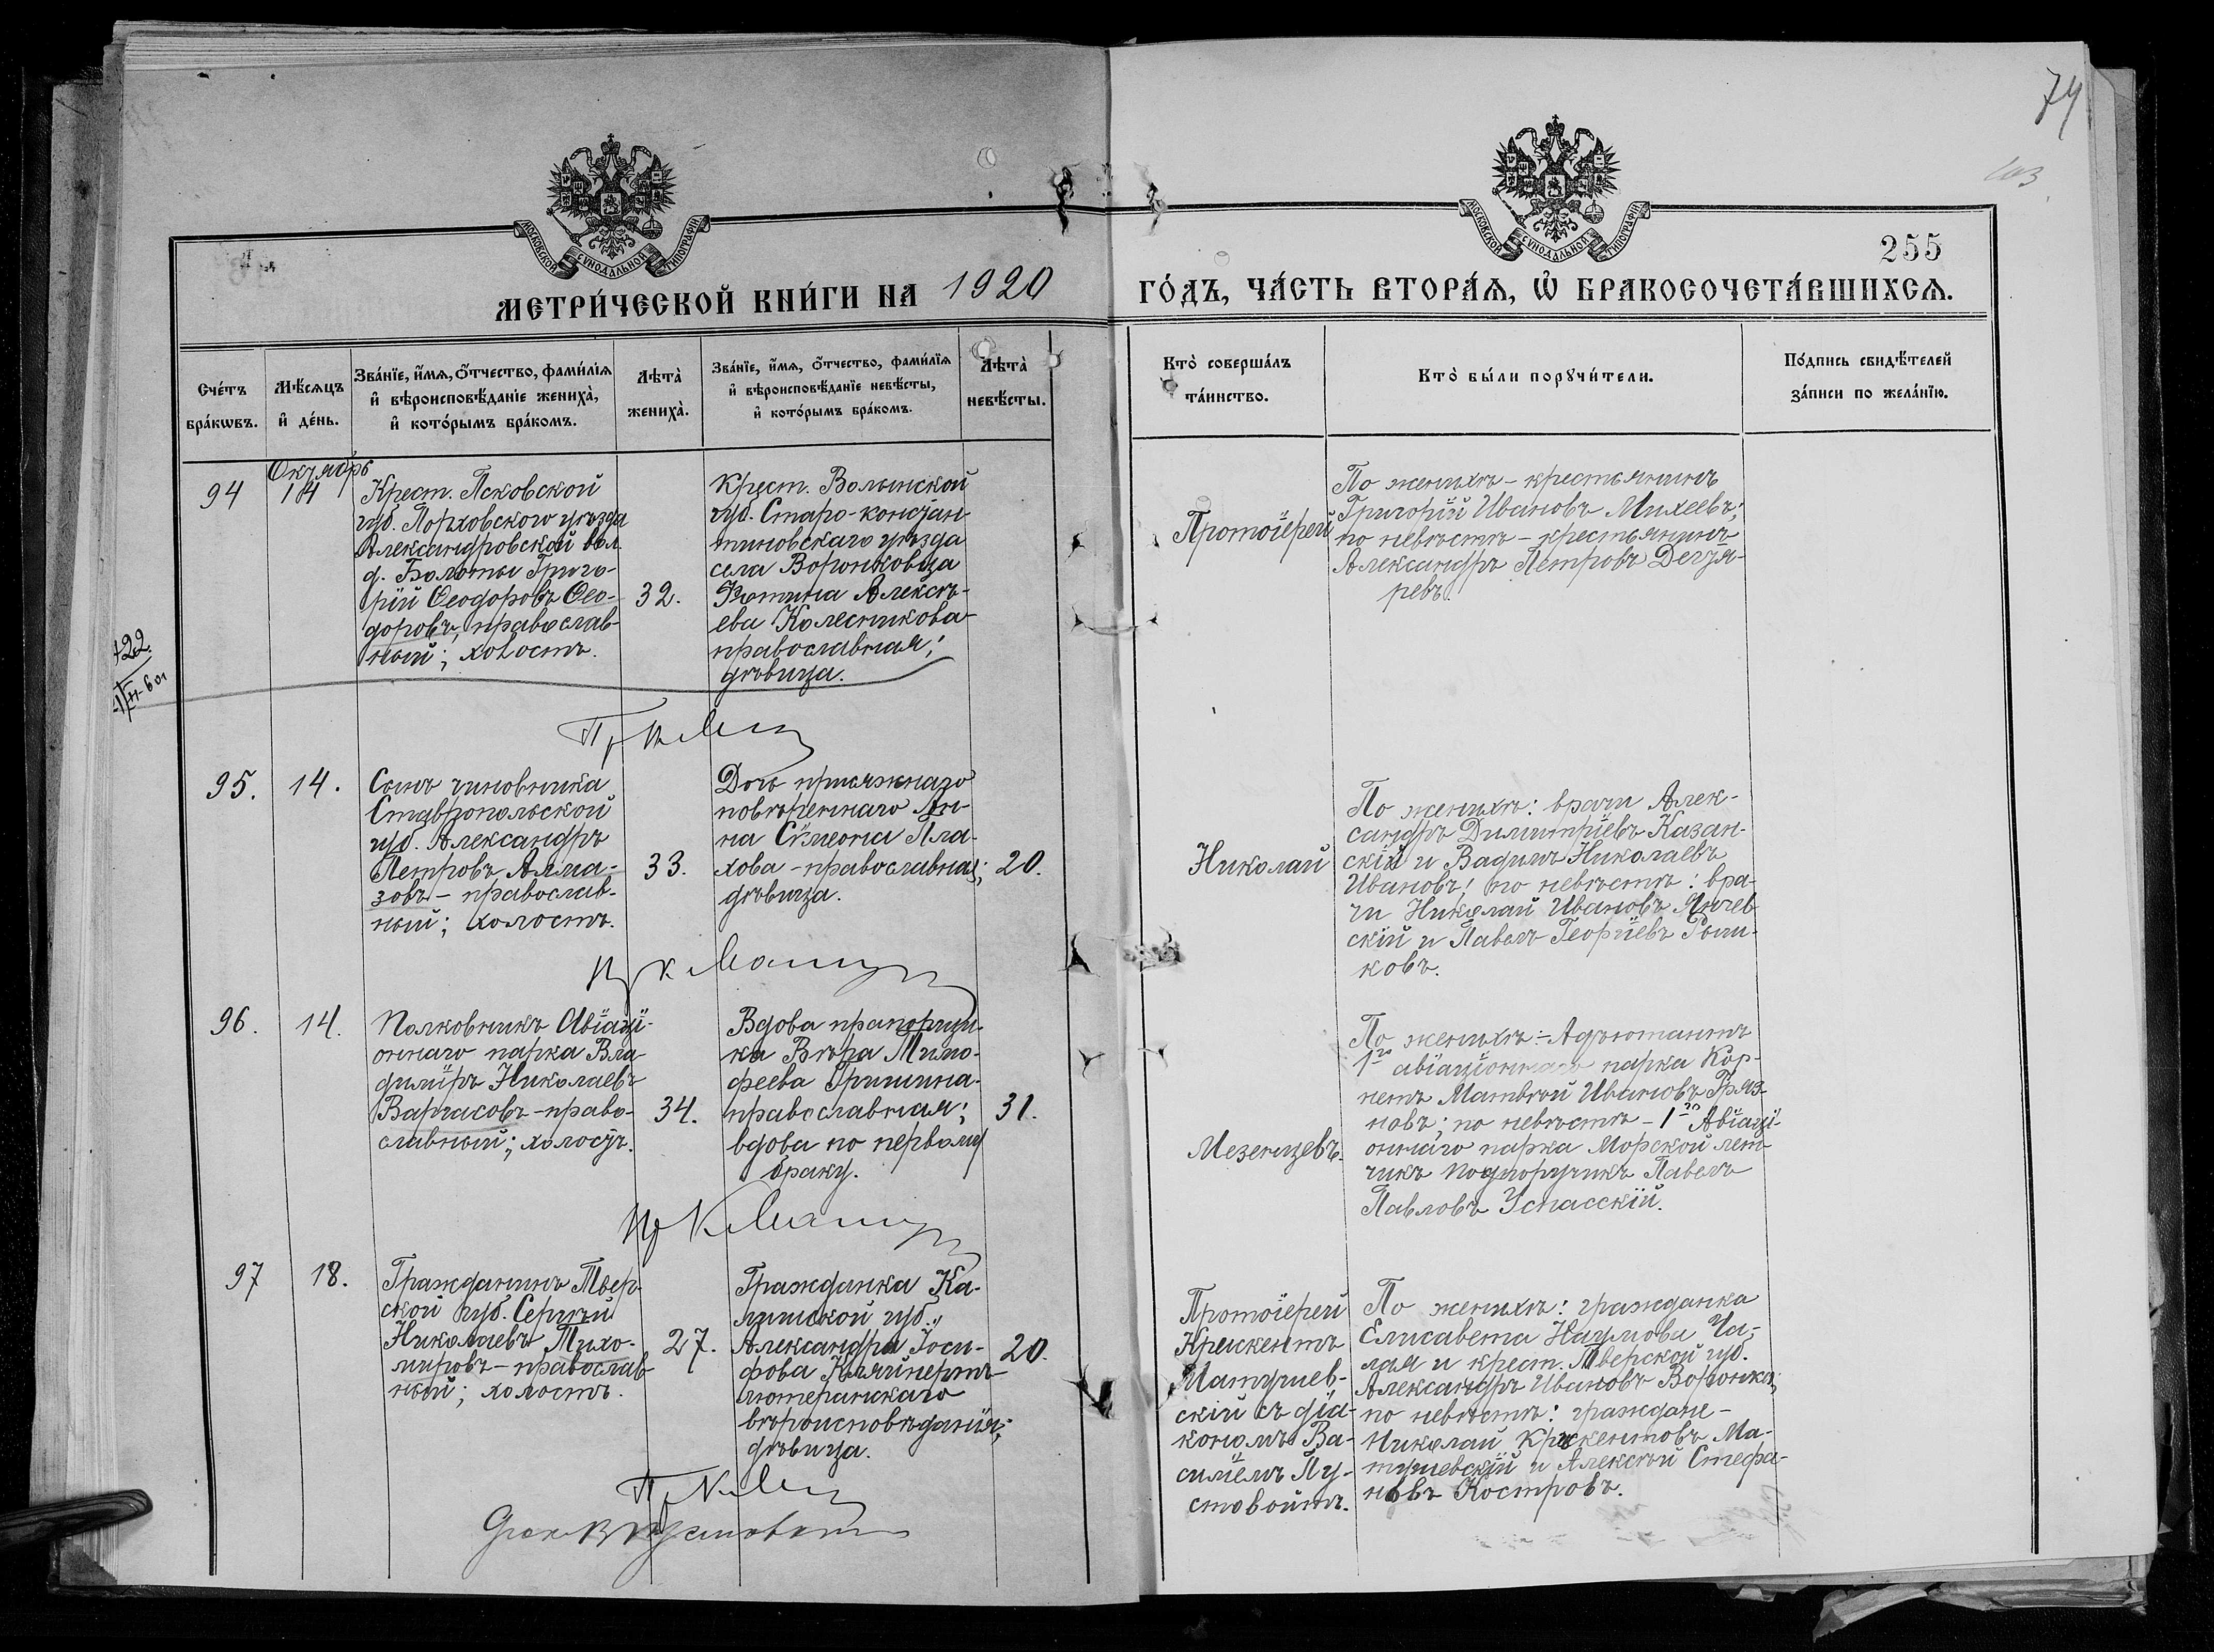 74
103
255
МОСКОВСКОЙ СѴНОДАЛЬНОЙ ТИПОГРАФІИ
МОСКОВСКОЙ СѴНОДАЛЬНОЙ ТИПОГРАФІИ
МЕТРИ́ЧЕСКОЙ КНИ́ГИ НА 1920
ГО́ДЪ, ЧА́СТЬ ВТОРА́Я, Ѽ БРАКОСОЧЕТА́ВШИХСЯ.
Сче́тъ
бра́кѡвъ.
Мѣ́сяцъ
и҆ де́нь.
Зва́нїе, и҆́мя, ѻ҆́тчество, фами́лїя
и҆ вѣроисповѣ́данїе жениха̀,
и҆ кото́рымъ бра́комъ.
Лѣта̀
жениха̀.
Зва́нїе, и҆́мя, ѻ҆́тчество, фами́лїя
и҆ вѣроисповѣ́данїе невѣ́сты,
и҆ кото́рымъ бра́комъ.
Лѣта̀
невѣ́сты.
Кто̀ соверша́лъ
та́инство.
Кто̀ бы́ли порꙋчи́тели.
По́дпись свидѣ́телей
за́писи по жела́нїю.
Октябрь
94
14
Крест. Псковской
губ. Порховского уѣзда
Александровской вол.
д. Болоты Григо-
рій Ѳеодоровъ Ѳео-
доровъ, православ-
ный; холостъ.
32.
Крест. Волынской
губ. Старо-констан-
тиновскаго уѣзда
села Воронковца
Фотина Алексѣ-
ева Колесникова
православная;
дѣвица.
Протоіерей
По женихѣ – крестьянинъ
Григорій Ивановъ Михеевъ;
по невѣстѣ – крестьянинъ
Александръ Петровъ Дегтя-
ревъ.
95.
14.
Сынъ чиновника
Ставропольской
губ. Александръ
Петровъ Алма-
зовъ – православ-
ный; холостъ.
33.
Дочь присяжнаго
повѣреннаго Ан-
на Сѵмеона Пла-
хова – православная;
дѣвица.
20.
Николай
По женихѣ: врачи Алек-
сандръ Димитріевъ Казан-
скій и Вадимъ Николаевъ
Ивановъ; по невѣстѣ: вра-
чи Николай Ивановъ Янчев
скій и Павелъ Георгіевъ
ковъ.
96.
14.
Полковникъ Авіаці-
оннаго парка Вла-
диміръ Николаевъ
Варгасовъ – право-
славный; холостъ.
34.
Вдова прапорщи-
ка Вѣра Тимо-
феева Гришина
православная;
вдова по первому
браку.
31.
Мезенцевъ.
По женихѣ: – Адъютантъ
1го авіаціоннаго парка Кор-
нетъ Матвѣй Ивановъ Гряз-
новъ; по невѣстѣ – 1го Авіаці-
оннаго парка Морской лет-
чикъ Подпоручикъ Павелъ
Павловъ Успасскій.
97
18.
Гражданинъ Твер-
ской губ. Сергѣй
Николаевъ Тихо-
мировъ – православ-
ный; холостъ.
27.
Гражданка Ка-
лишской губ.,
Александра Іоси-
фова Кляйнертъ
лютеранскаго
вѣроисповѣданія;
дѣвица.
20.
Протоіерей
Крискентъ
Матушев-
скій съ діа-
кономъ Ва-
силіемъ Пу-
стовойтъ.
По женихѣ: гражданка
Елисавета Наумова Ча-
лая и крест. Тверской губ.
Александръ Ивановъ Воронка;
по невѣстѣ: граждане –
Николай Крискентовъ Ма-
тушевскій и Алексѣй Стефа-
новъ Костровъ.